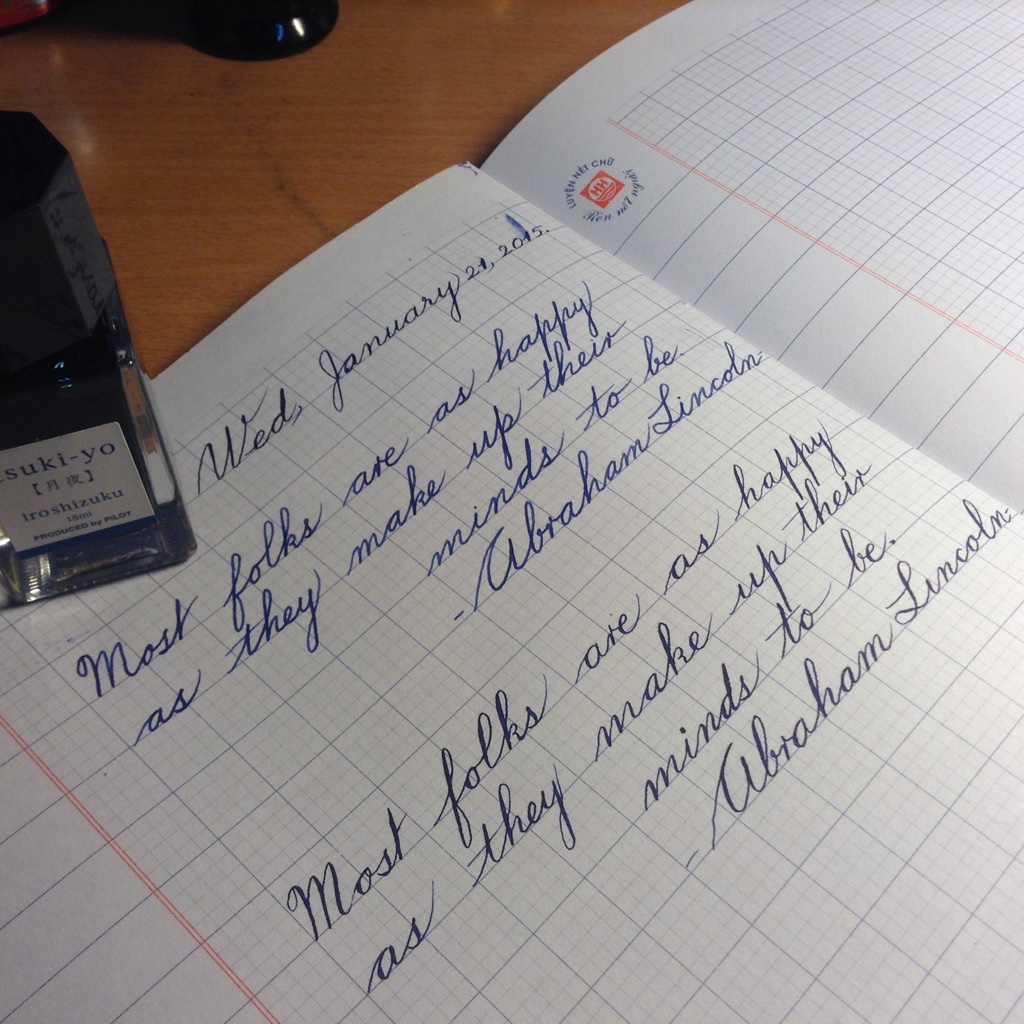 LUYỆN NÉT CHỮ
HH
Rèn nết người
Wed, January 21, 2015.
Most folks are as happy
as they make up their
minds to be.
- Abraham Lincoln-
Most folks are as happy
as they make up their
minds to be.
- Abraham Lincoln-
suki-yo
【月夜】
iroshizuku
15ml
PRODUCED by PILOT